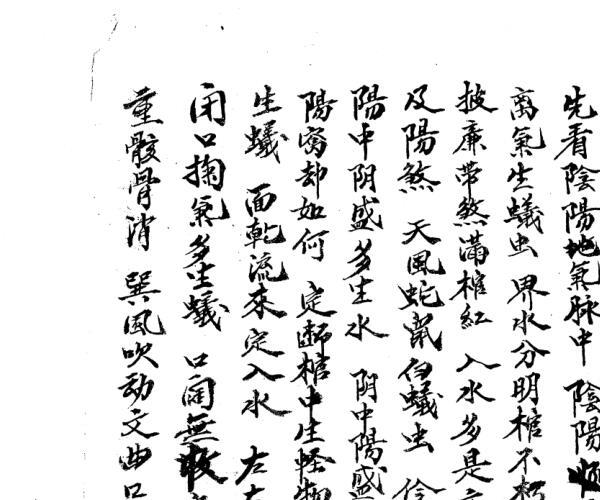 先看陰陽地氣脉中 陰陽順
离氣生蟻虫 界水分明棺不
披廉帶煞滿棺紅 入水多是
及陽煞 天風蛇鼠白蟻虫
陽中阴盛多生水 阴中陽盛
陽窩却如何 定断棺中生蛏
生蟻 面乾流來定入水 左右
闭口掬氣多生蟻 口闭無收
重骸骨消 巽風吹动文曲口